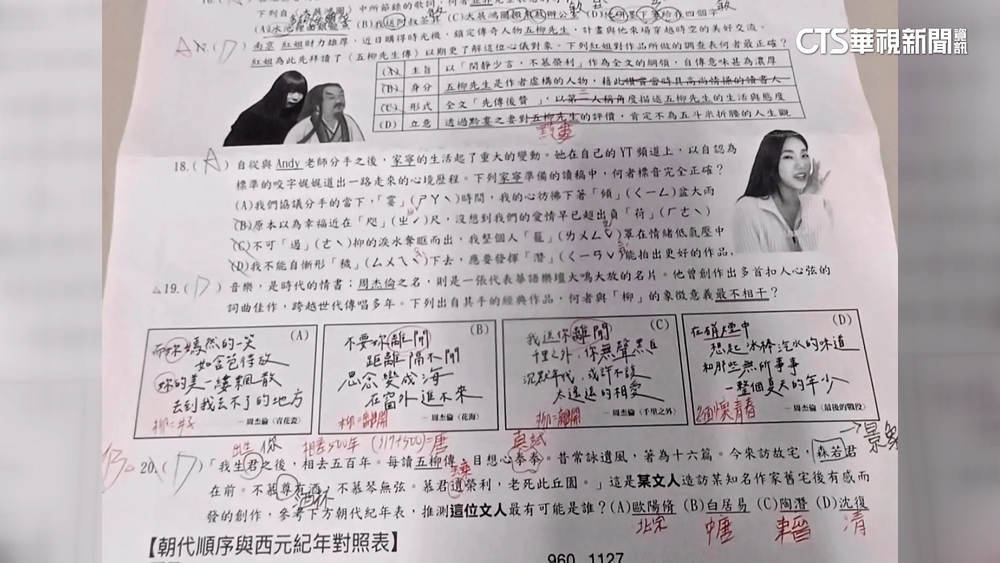 CTS華視新聞資訊
下列自 中所節錄的歌詞，何者
南京 紅姐財力雄厚，近日購得時光機，鎖定傳奇人物五柳先生，計畫與他來場穿越時空的美好交流。
紅姐為此先拜讀了〈五柳先生傳〉以期更了解這位心儀對象。下列紅姐對作品所做的調查表何者最正確？
(A) 主旨 以「閑靜少言，不慕榮利」作為全文的綱領，自傳意味甚為濃厚
(B) 身分 五柳先生是作者虛構的人物，藉此
(C) 形式 全文「先傳後贊」，以第三人稱角度描述五柳先生的生活與態度
(D) 立意 透過黔婁之妻對五柳先生的評價，肯定不為五斗米折腰的人生觀
黔婁
18.(A) 自從與Andy老師分手之後，家寧的生活起了重大的變動。她在自己的YT頻道上，以自認為
標準的咬字娓娓道出一路走來的心境歷程。下列家寧準備的讀稿中，何者標音完全正確？
(A)我們協議分手的當下，「霎」(ㄕㄚˋ)時間，我的心彷彿下著「傾」(ㄑㄧㄥ)盆大雨
(B)原本以為幸福近在「咫」(ㄓˇ)尺，沒想到我們的愛情早已超出負「荷」(ㄏㄜˋ)
(C)不可「遏」(ㄜˋ)抑的淚水奪眶而出，我整個人「籠」(ㄌㄨㄥˇ)罩在情緒低氣壓中
(D)我不能自慚形「穢」(ㄏㄨㄟˋ)下去，應要發揮「潛」(ㄑㄧㄢˊ)能拍出更好的作品。
△19.(D) 音樂，是時代的情書；周杰倫之名，則是一張代表華語樂壇大鳴大放的名片。他曾創作出多首扣人心弦的
詞曲佳作，跨越世代傳唱多年。下列出自其手的經典作品，何者與「柳」的象徵意義最不相干？
(A)
而妳嫣然的一笑
如含苞待放
妳的美一縷飄散
去到我去不了的地方
—周杰倫〈青花瓷〉
(B)
不要妳離開
距離隔不開
思念變成海
在窗外進不來
柳=離開
—周杰倫〈花海〉
(C)
我送你離開
千里之外，你無聲黑白
沉默年代，或許不該
太遙遠的相愛
柳=離開
—周杰倫〈千里之外〉
(D)
在硝煙中
想起冰棒汽水的味道
和那些無所事事
一整個夏天的年少
緬懷青春
—周杰倫〈最後的戰役〉
出生 你 相差500年 (317+500)=唐 真誠 →景象
20.(D)「我生君之後，相去五百年。每讀五柳傳，目想心拳拳。昔常詠遺風，著為十六篇。今來訪故宅，森若君
在前。不慕尊有酒，不慕琴無弦。慕君遺榮利，老死此丘園。」這是某文人造訪某知名作家舊宅後有感而
酒杯
發的創作，參考下方朝代紀年表，推測這位文人最有可能是誰？(A)歐陽脩 (B)白居易 (C)陶潛 (D)沈復
北宋 中唐 東晉 清
【朝代順序與西元紀年對照表】
960 1127